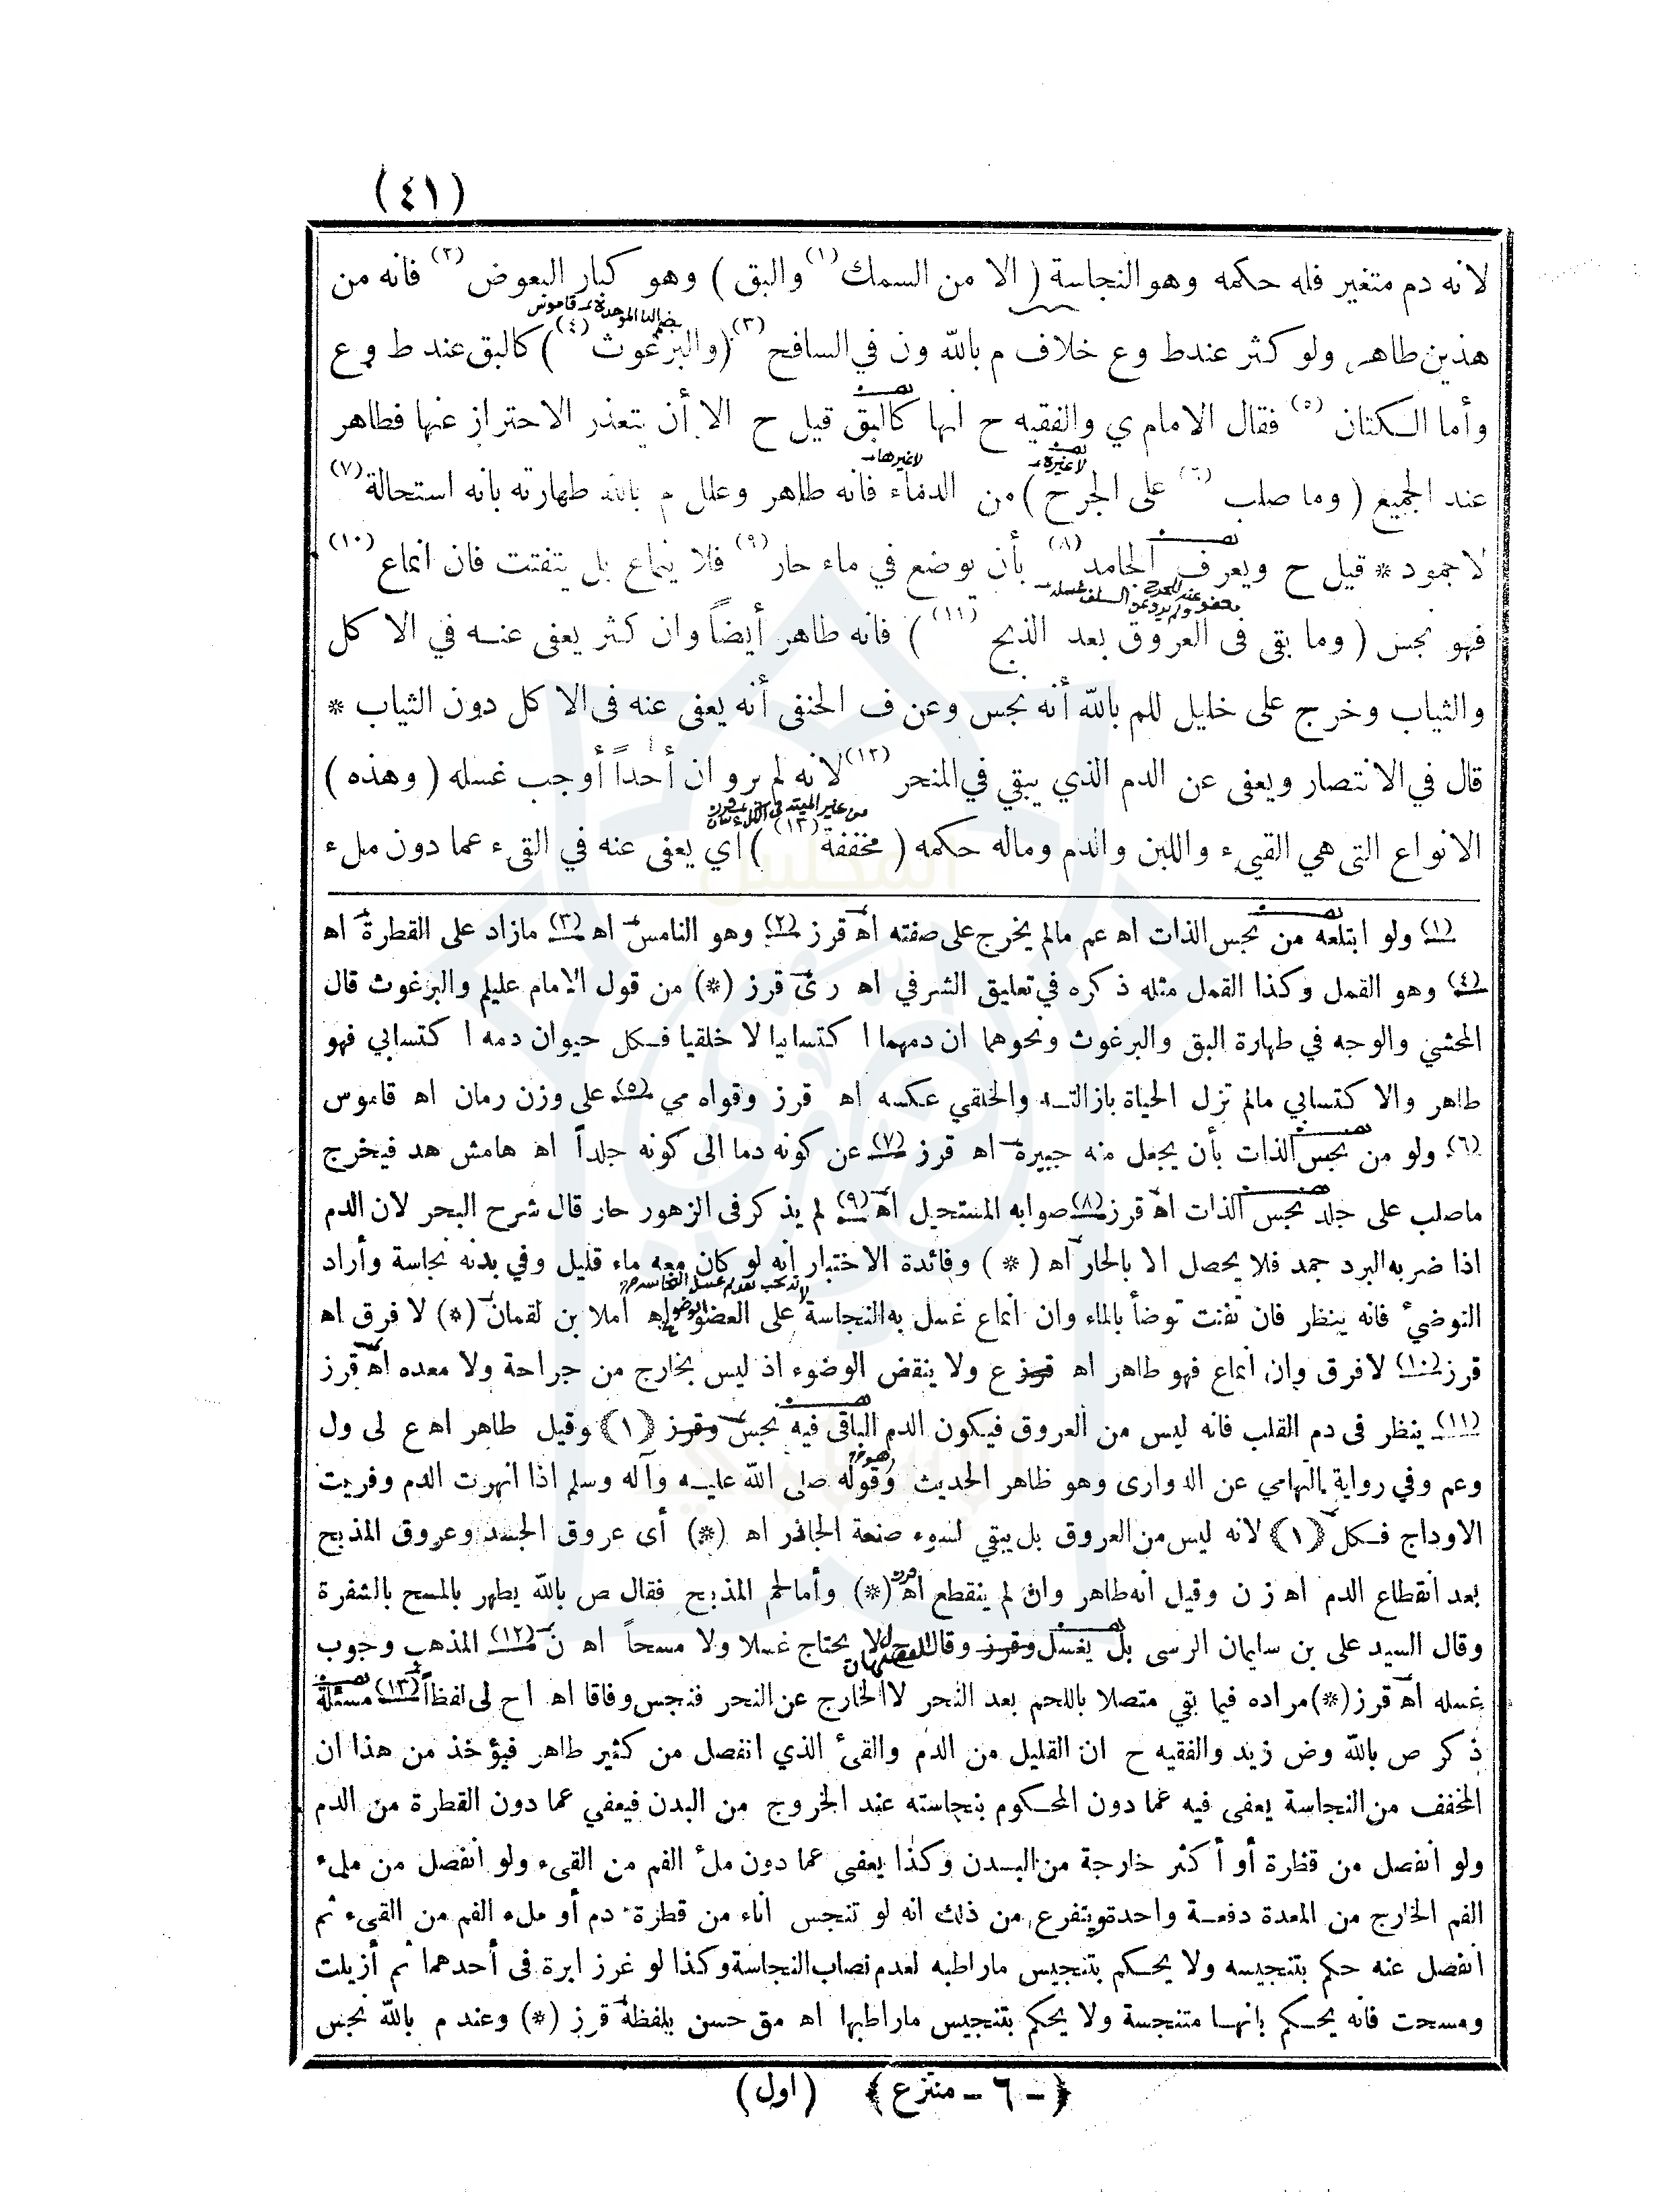 (٤١)
لانه دم متغير فله حكمه وهو النجاسة ( الا من السمك (١) والبق ) وهو كبار البعوض (٢) فانه من
بضم الباء الموحدة قاموس
هذين طاهر ولو كثر عند ط وع خلاف م بالله ون في السافح (٣) ( والبرغوث (٤) ) كالبق عند ط وع
وأما الكتان (٥) فقال الامام ي والفقيه ح انها كالبق قيل ح الا أن يتعذر الاحتراز عنها فطاهر
لا غيره لا غيرها
عند الجميع ( وما صلب (٦) على الجرح ) من الدماء فانه طاهر وعلل م بالله طهارته بانه استحالة (٧)
لا جمود * قيل ح ويعرف الجامد (٨) بأن يوضع في ماء حار (٩) فلا ينماع بل يتفتت فان انماع (١٠)
فهو نجس ( وما بقى فى العروق بعد الذبح (١١) ) فانه طاهر أيضاً وان كثر يعفى عنه في الاكل
والثياب وخرج على خليل للم بالله أنه نجس وعن ف الحنفى أنه يعفى عنه فى الاكل دون الثياب *
قال في الانتصار ويعفى عن الدم الذي يبقي في المنحر (١٢) لانه لم يرو ان أحداً أوجب غسله ( وهذه )
الانواع التى هي القيء واللبن والدم وماله حكمه ( مخففة (١٣) ) اي يعفى عنه في القىء عما دون ملء
(١) ولو ابتلعه من نجس الذات اه عم مالم يخرج على صفته اه قرز (٢) وهو النامس اه (٣) مازاد على القطرة اه
(٤) وهو القمل وكذا القمل مثله ذكره في تعليق الشرفي اه رى قرز (*) من قول الامام عليلم والبرغوث قال
المحشي والوجه في طهارة البق والبرغوث ونحوهما ان دمهما اكتسابيا لا خلقيا فكل حيوان دمه اكتسابي فهو
طاهر والاكتسابي مالم تزل الحياة بازالته والخلقي عكسه اه قرز وقواه مي (٥) على وزن رمان اه قاموس
(٦) ولو من نجس الذات بأن يجعل منه جبيرة اه قرز (٧) عن كونه دما الى كونه جلداً اه هامش هد فيخرج
ماصلب على جلد نجس الذات اه قرز (٨) صوابه المستحيل اه (٩) لم يذكر فى الزهور حار قال شرح البحر لان الدم
اذا ضربه البرد جمد فلا يحصل الا بالحار اه (*) وفائدة الاختبار انه لو كان معه ماء قليل وفي بدنه نجاسة وأراد
لانه يجب تقديم غسل النجاسة
التوضيء فانه ينظر فان تفتت توضأ بالماء وان انماع غسل به النجاسة على العضو اه املا بن لقمان (*) لا فرق اه
قرز (١٠) لافرق وان انماع فهو طاهر اه قرز ع ولا ينقض الوضوء اذ ليس بخارج من جراحة ولا معده اه قرز
(١١) ينظر فى دم القلب فانه ليس من العروق فيكون الدم الباقى فيه نجس وقرز (١) وقيل طاهر اه ع لى ول
وعم وفي رواية التهامي عن الدوارى وهو ظاهر الحديث وقوله صلى الله عليه وآله وسلم اذا انهرت الدم وفريت
الاوداج فكل (١) لانه ليس من العروق بل يبقي لسوء صنعة الجاذر اه (*) أى عروق الجسد وعروق المذبح
بعد انقطاع الدم اه ز ن وقيل انه طاهر وان لم ينقطع اه (*) وأما لحم المذبح فقال ص بالله يطهر بالمسح بالشفرة
وقال السيد على بن سليمان الرسى بل يغسل وقرز وقال لا يحتاج غسلا ولا مسحاً اه ن (١٢) المذهب وجوب
غسله اه قرز (*) مراده فيما بقي متصلا باللحم بعد النحر لا الخارج عن النحر فنجس وفاقا اه اح لى لفظاً (١٣) مسئلة
ذكر ص بالله وض زيد والفقيه ح ان القليل من الدم والقىء الذي انفصل من كثير طاهر فيؤخذ من هذا ان
المخفف من النجاسة يعفى فيه عما دون المحكوم بنجاسته عند الخروج من البدن فيعفي عما دون القطرة من الدم
ولو انفصل من قطرة أو أكثر خارجة من البدن وكذا يعفى عما دون ملء الفم من القىء ولو انفصل من ملء
الفم الخارج من المعدة دفعة واحدة ويتفرع من ذلك انه لو تنجس اناء من قطرة دم أو ملء الفم من القىء ثم
انفصل عنه حكم بتنجيسه ولا يحكم بتنجيس ماراطبه لعدم نصاب النجاسة وكذا لو غرز ابرة فى أحدهما ثم أزيلت
ومسحت فانه يحكم بانها متنجسة ولا يحكم بتنجيس ماراطبها اه مق حسن بلفظه قرز (*) وعند م بالله نجس
(- ٦ - منتزع) (اول)